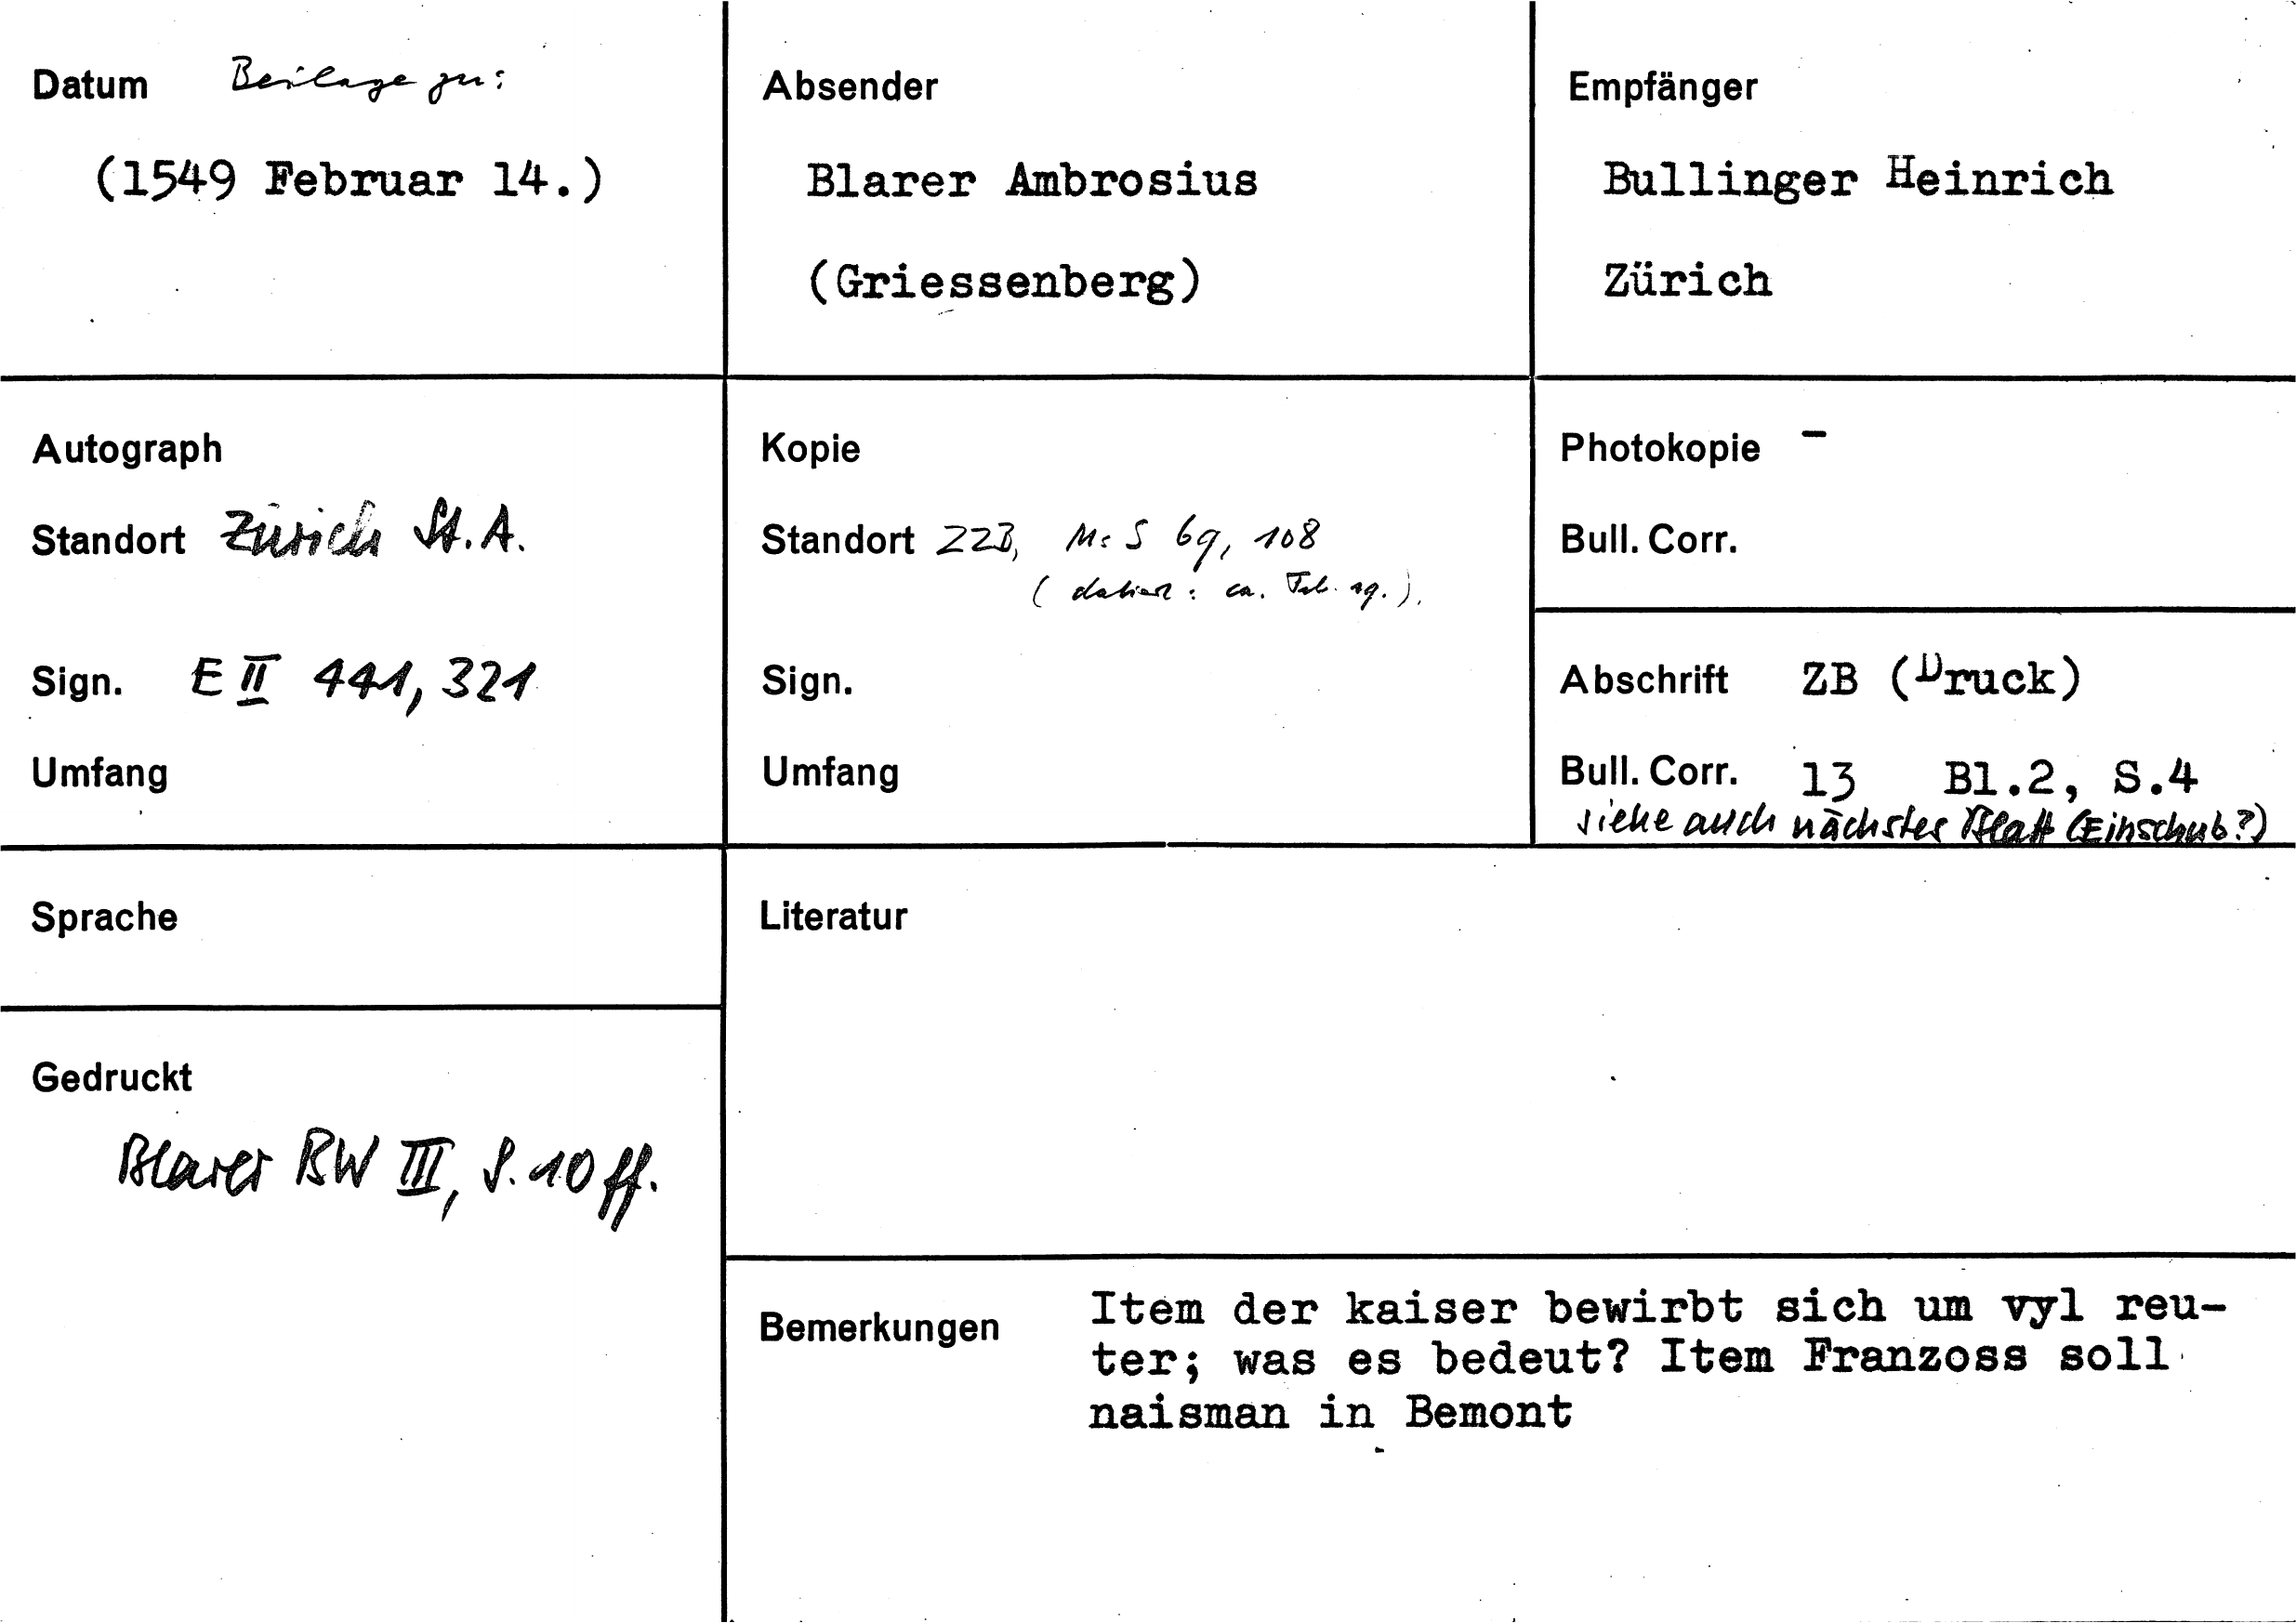 Datum Beilage zu:
(1549 Februar 14.)
Absender
Blarer Ambrosius
(Griessenberg)
Empfänger
Bullinger Heinrich
Zürich
Autograph
Standort Zürich St.A.
Sign. E II 441, 321
Umfang
Kopie
Standort ZZB, Ms S 69, 108
(datiert: ca. Feb. 19.).
Sign.
Umfang
Photokopie -
Bull. Corr.
Abschrift ZB (Druck)
Bull. Corr. 13 Bl.2, S.4
siehe auch nächstes Blatt (Einschub?)
Sprache
Literatur
Gedruckt
Blarer BW III, S. 10 ff.
Bemerkungen
Item der kaiser bewirbt sich um vyl reu-
ter; was es bedeut? Item Franzoss soll
naisman in Bemont